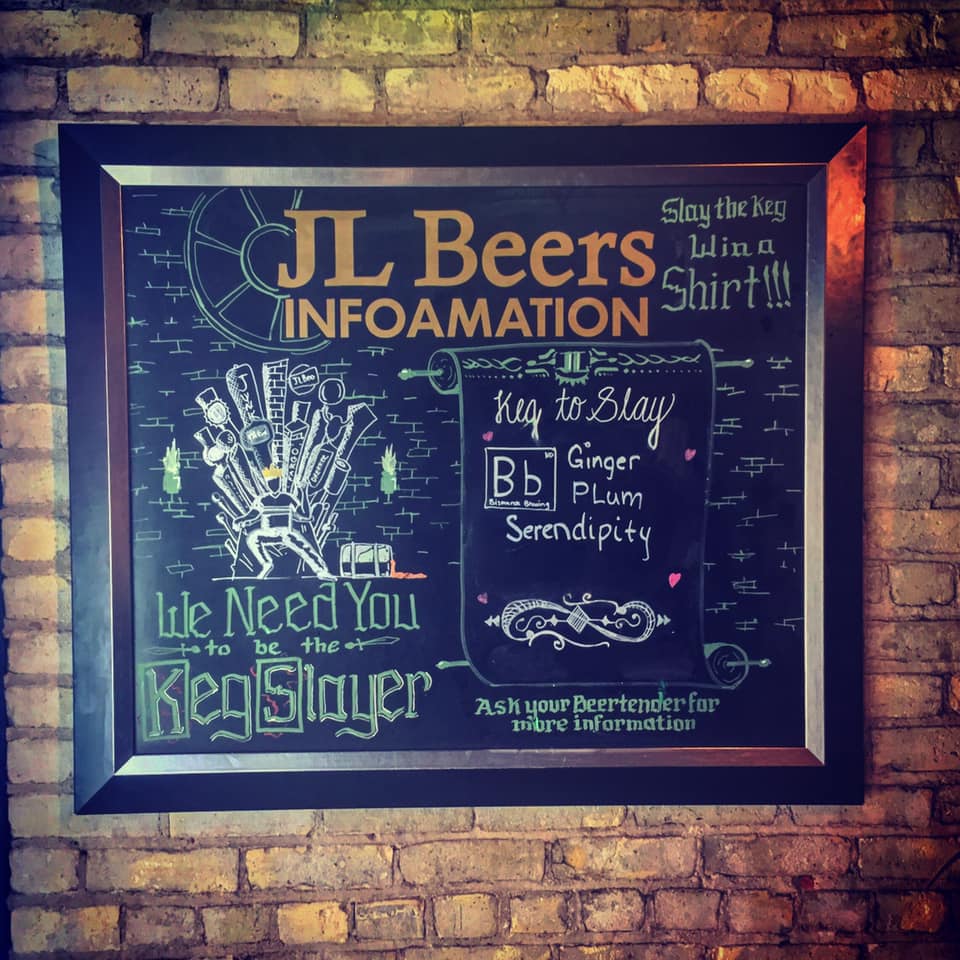 JL Beers
INFOAMATION
Slay the Keg
Win a
Shirt!!!
JL Beers
Keg to Slay
Bb
Bismarck Brewing
Ginger
PLum
Serendipity
We Need You
to be the
Keg Slayer
Ask your Beertender for
more information